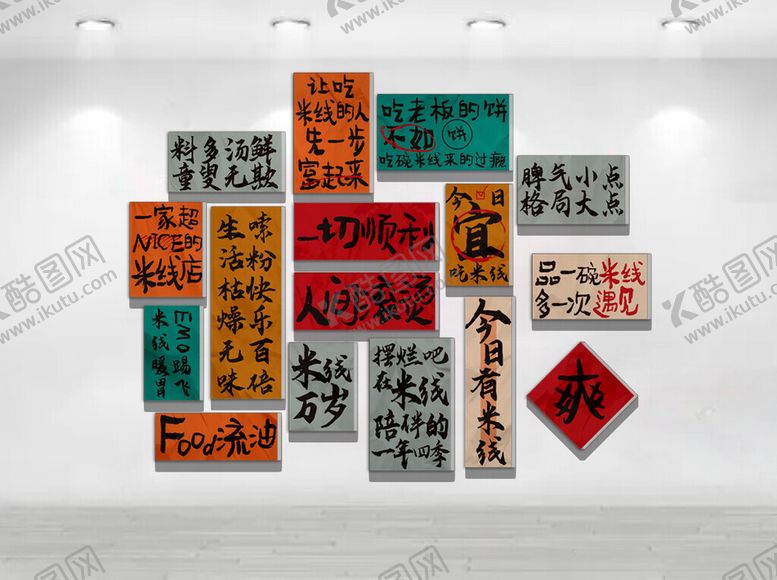 让吃
米线的人
先一步
富起来
吃老板的饼
不如 饼
吃碗米线来的过瘾
料多汤鲜
童叟无欺
脾气小点
格局大点
一家超
NICE的
米线店
生活枯燥无味
嗦粉快乐百倍
一切顺利
今日
宜
吃米线
品一碗米线
多一次遇见
人间滚烫
EMO踢飞
米线暖胃
米线
万岁
摆烂吧
在米线
陪伴的
一年四季
今日有米线
爽
Food流油
酷图网
www.ikutu.com